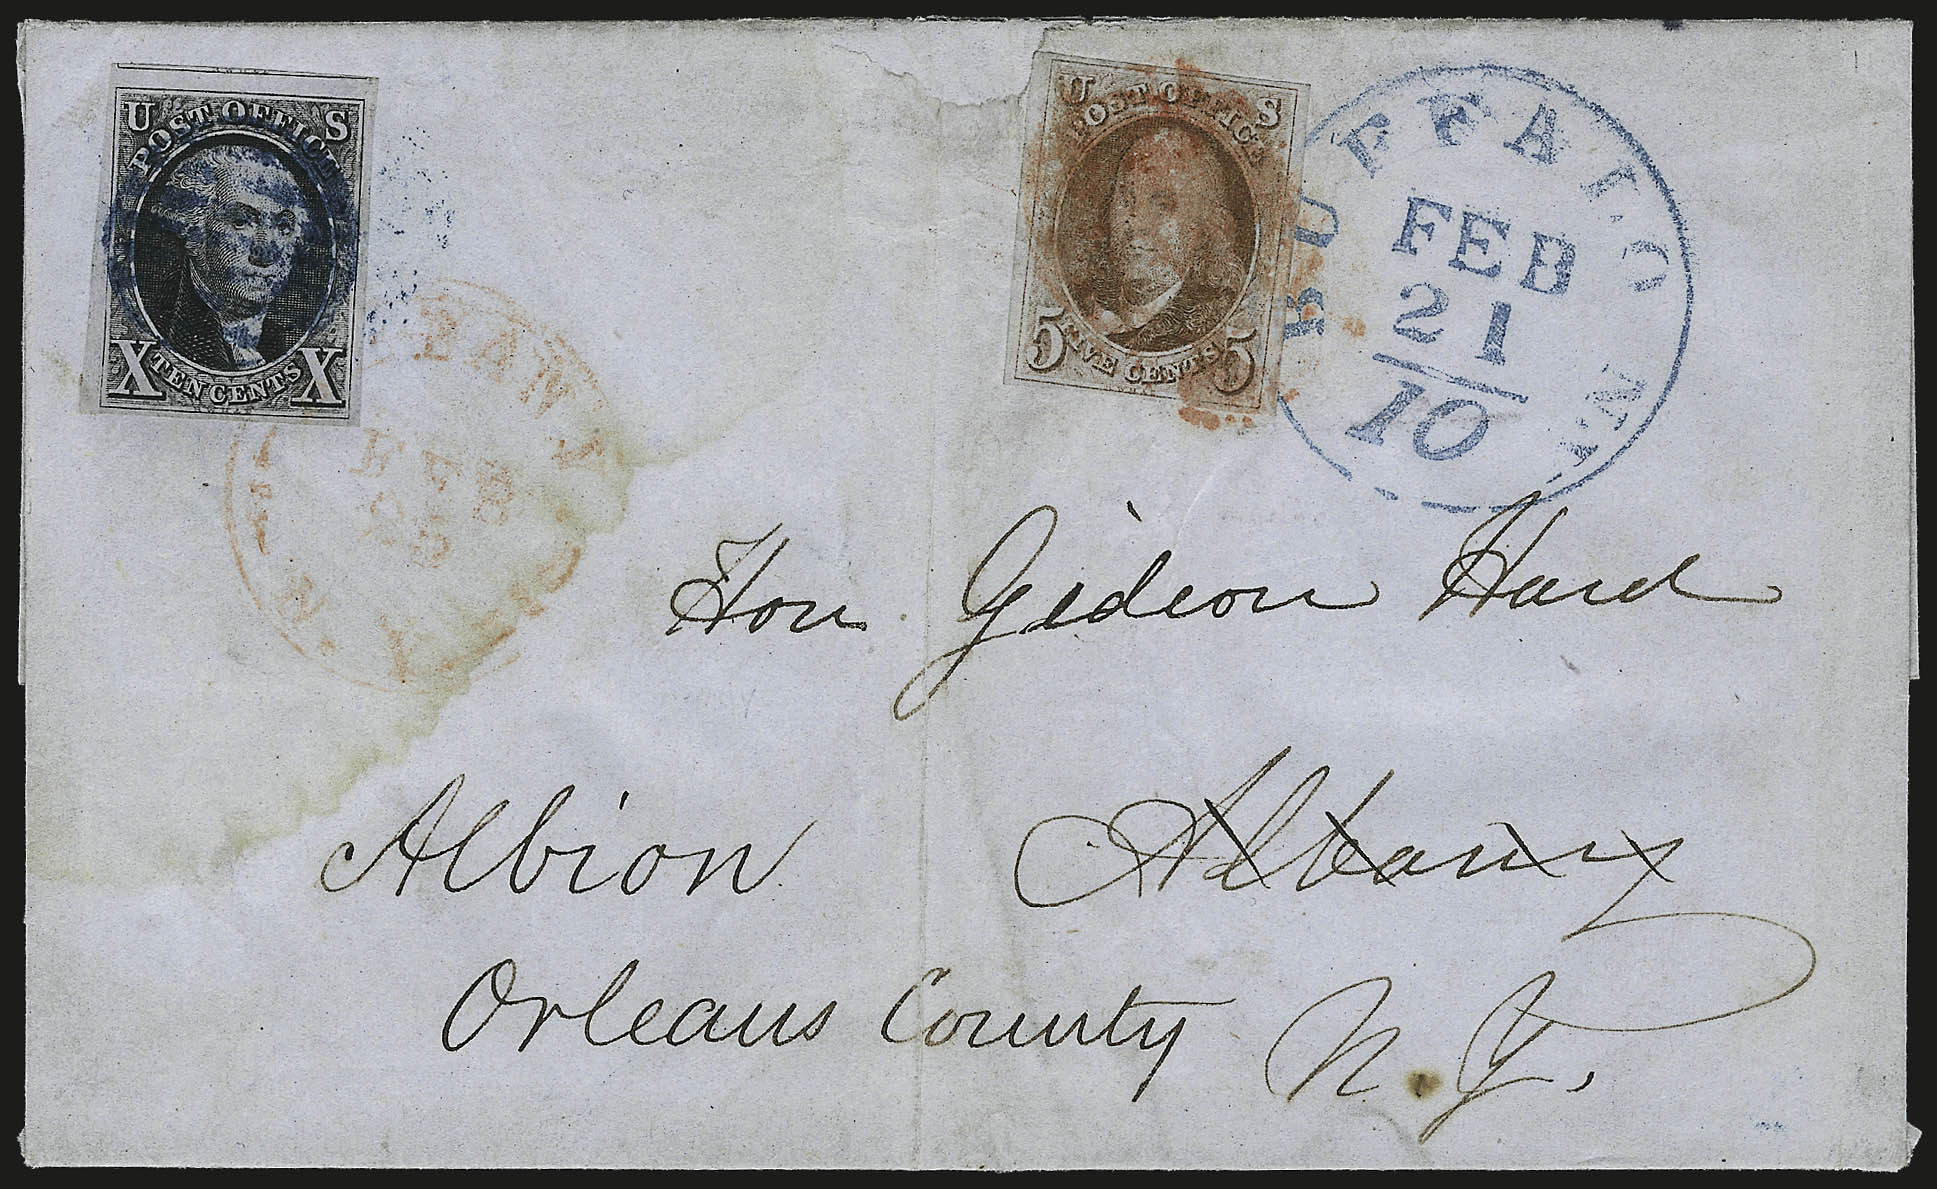 U S
POST OFFICE
X TEN CENTS X
U S
POST OFFICE
5 FIVE CENTS 5
BUFFALO N.Y.
FEB
21
10
ALBANY
FEB
N.Y.
Hon. Gideon Hard
Albion Albany
Orleans County N.Y.